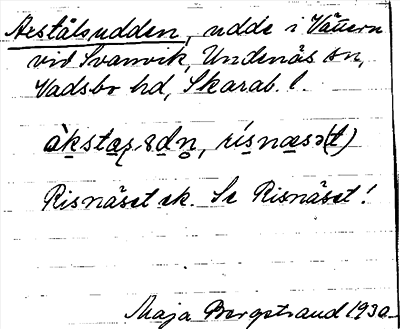 Aestålsudden, udde i Vättern
vid Svanvik, Undenäs sn,
Vadsbo hd, Skarab. l.
rísnæsə(t)
Risnäset ek. Se Risnäset!
Maja Bergstrand 1930